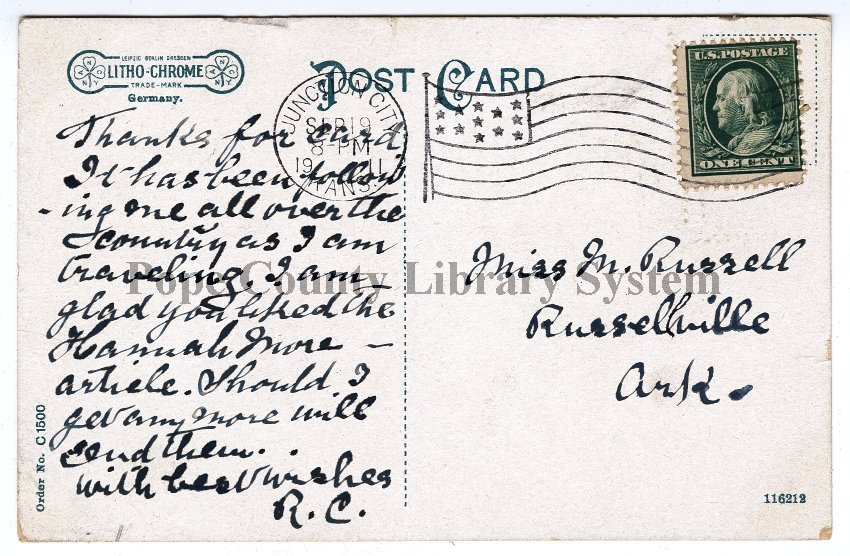 LEIPZIG BERLIN DRESDEN
LITHO-CHROME
TRADE-MARK
Germany.
POST CARD
JUNCTION CITY
SEP 19
8 PM
1911
KANS.
U.S. POSTAGE
ONE CENT
Thanks for card
It has been follow
-ing me all over the
country as I am
traveling. I am
glad you liked the
Hannah More —
article. Should I
get any more will
send them.
with best wishes
R. C.
Miss M. Russell
Russellville
Ark.
Pope County Library System
Order No. C 1500
116212